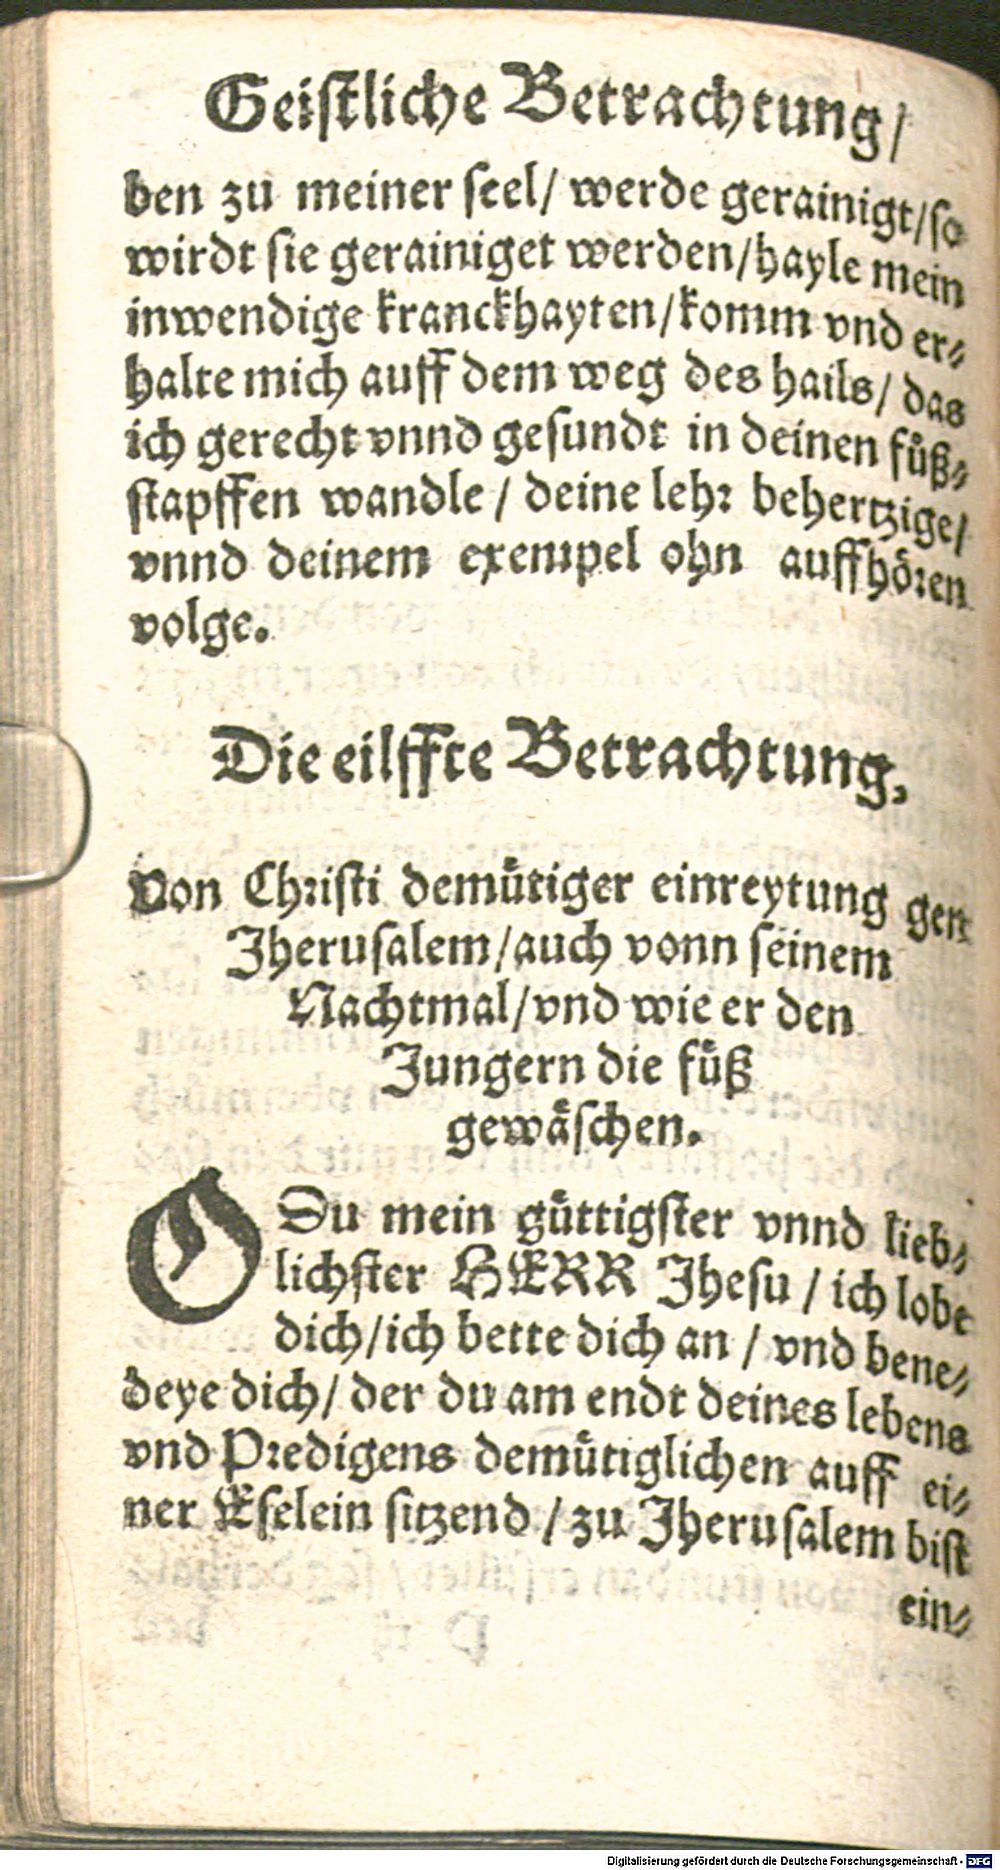 Geistliche Betrachtung/
ben zu meiner seel/ werde gerainigt/so
wirdt sie gerainiget werden/hayle mein
inwendige kranckhayten/komm vnd er⸗
halte mich auff dem weg des hails/ das
ich gerecht vnnd gesundt in deinen fuͤß⸗
stapffen wandle / deine lehr behertzige/
vnnd deinem exempel ohn auffhoͤren
volge.
Die eilffte Betrachtung,
Von Christi demuͤtiger einreytung gen
Jherusalem/auch vonn seinem
Nachtmal/vnd wie er den
Jungern die fuͤß
gewaͤschen.
O Du mein guͤttigster vnnd lieb⸗
lichster HERR Jhesu / ich lobe
dich/ich bette dich an / vnd bene⸗
deye dich/ der du am endt deines lebens
vnd Predigens demuͤtiglichen auff ei⸗
ner Eselein sitzend / zu Jherusalem bist
ein⸗
Digitalisierung gefördert durch die Deutsche Forschungsgemeinschaft - DFG